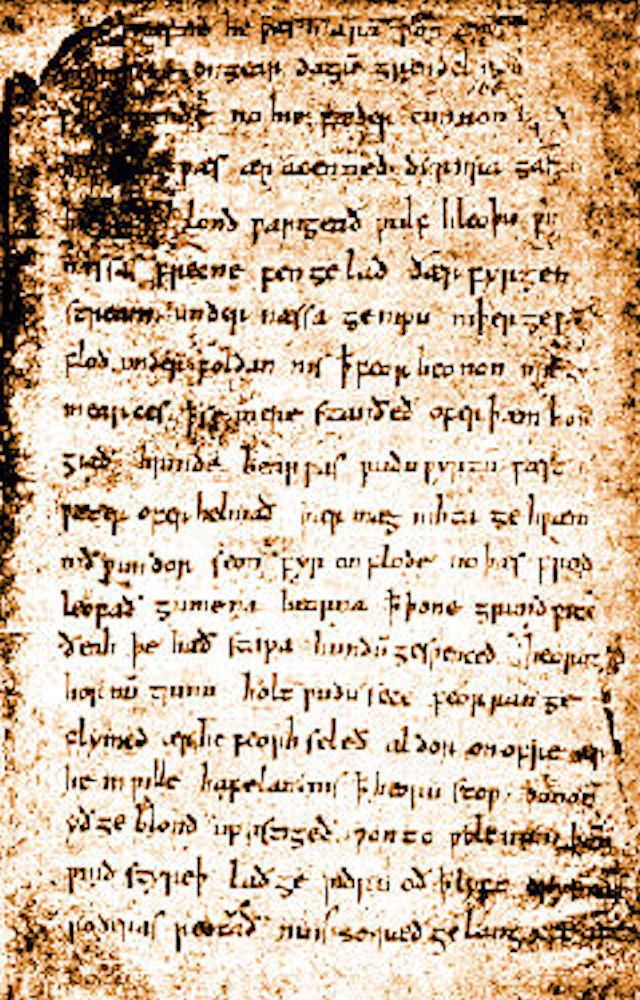 he wæs mara þon
on geardagū grendel
no hie fæder cunnon
wæs ær acenned dyrnra gas
lond warigeað wulf hleoþu wi
næssas frecne fen gelad ðær fyrgen
stream under næssa genipu niþer gew
flod under foldan nis ꝥ feor heonon mil
mearces ꝥ se mere standeð ofer þæm hon
giað hrinde bearwas wudu wyrtū fæst
wæter ofer helmað þær mæg nihta ge hwæm
nið wundor seon fyr on flode no þæs frod
leofað gumena bearna ꝥ þone grund wite
ðeah þe hæð stapa hundū geswenced heorot
hornū trum holt wudu sece feorran ge
flymed ær he feorh seleð aldor on ofre ær
he in wille hafelan nis ꝥ heoru stow þonon
yð ge blond up astigeð won to wolcnum þon
wind styreþ lað ge widru oð ꝥ lyft
roderas reotað nu is se ræd gelang